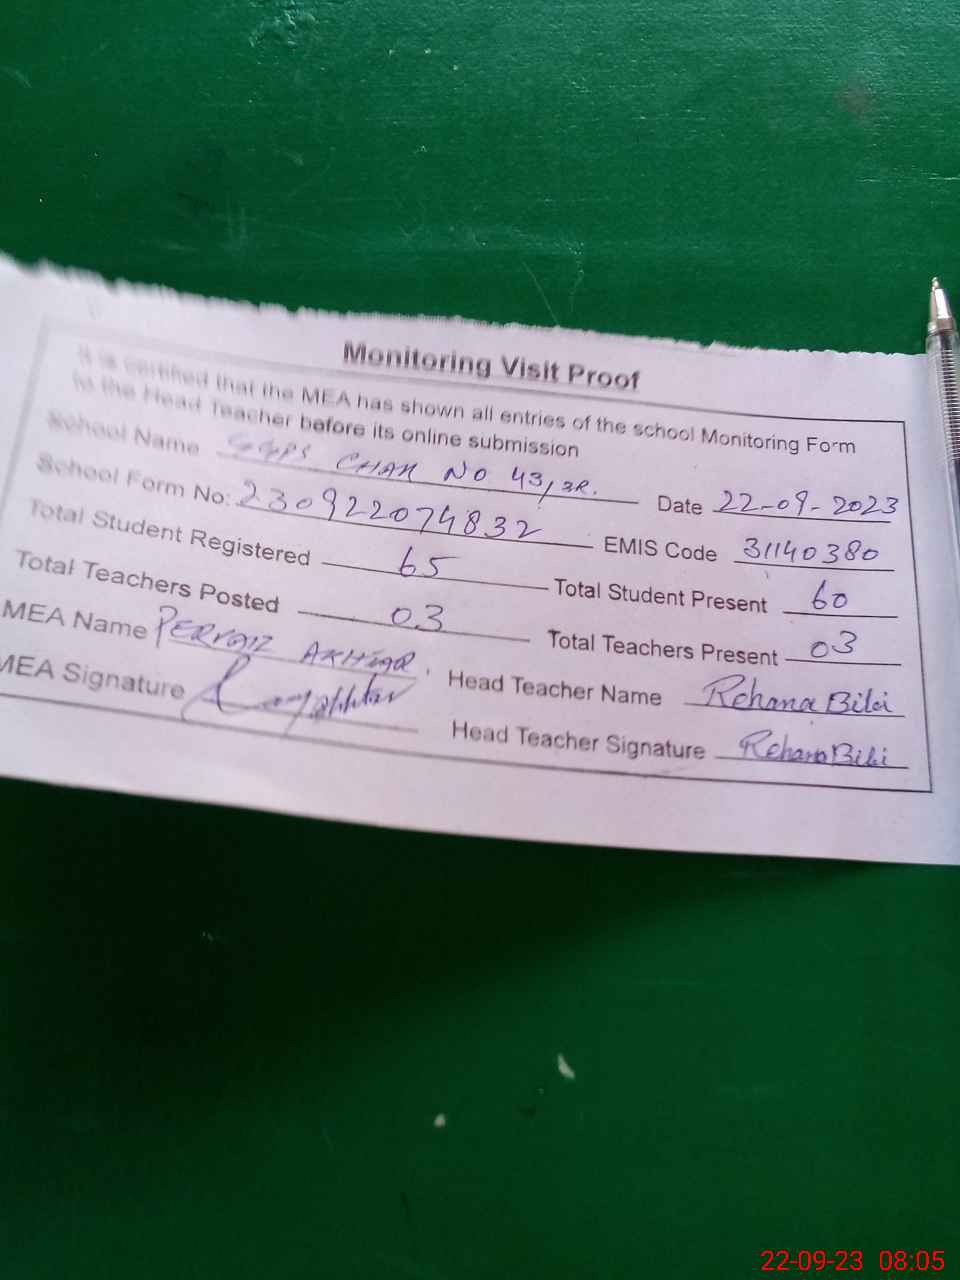 Monitoring Visit Proof
It is certified that the MEA has shown all entries of the school Monitoring Form
to the Head Teacher before its online submission
School Name GGPS CHAK NO 43/3R. Date 22-09-2023
School Form No: 230922074832 EMIS Code 31140380
Total Student Registered 65 Total Student Present 60
Total Teachers Posted 03 Total Teachers Present 03
MEA Name PERVAIZ AKHTAR. Head Teacher Name Rehana Bibi
MEA Signature Head Teacher Signature Rehana Bibi
22-09-23 08:05